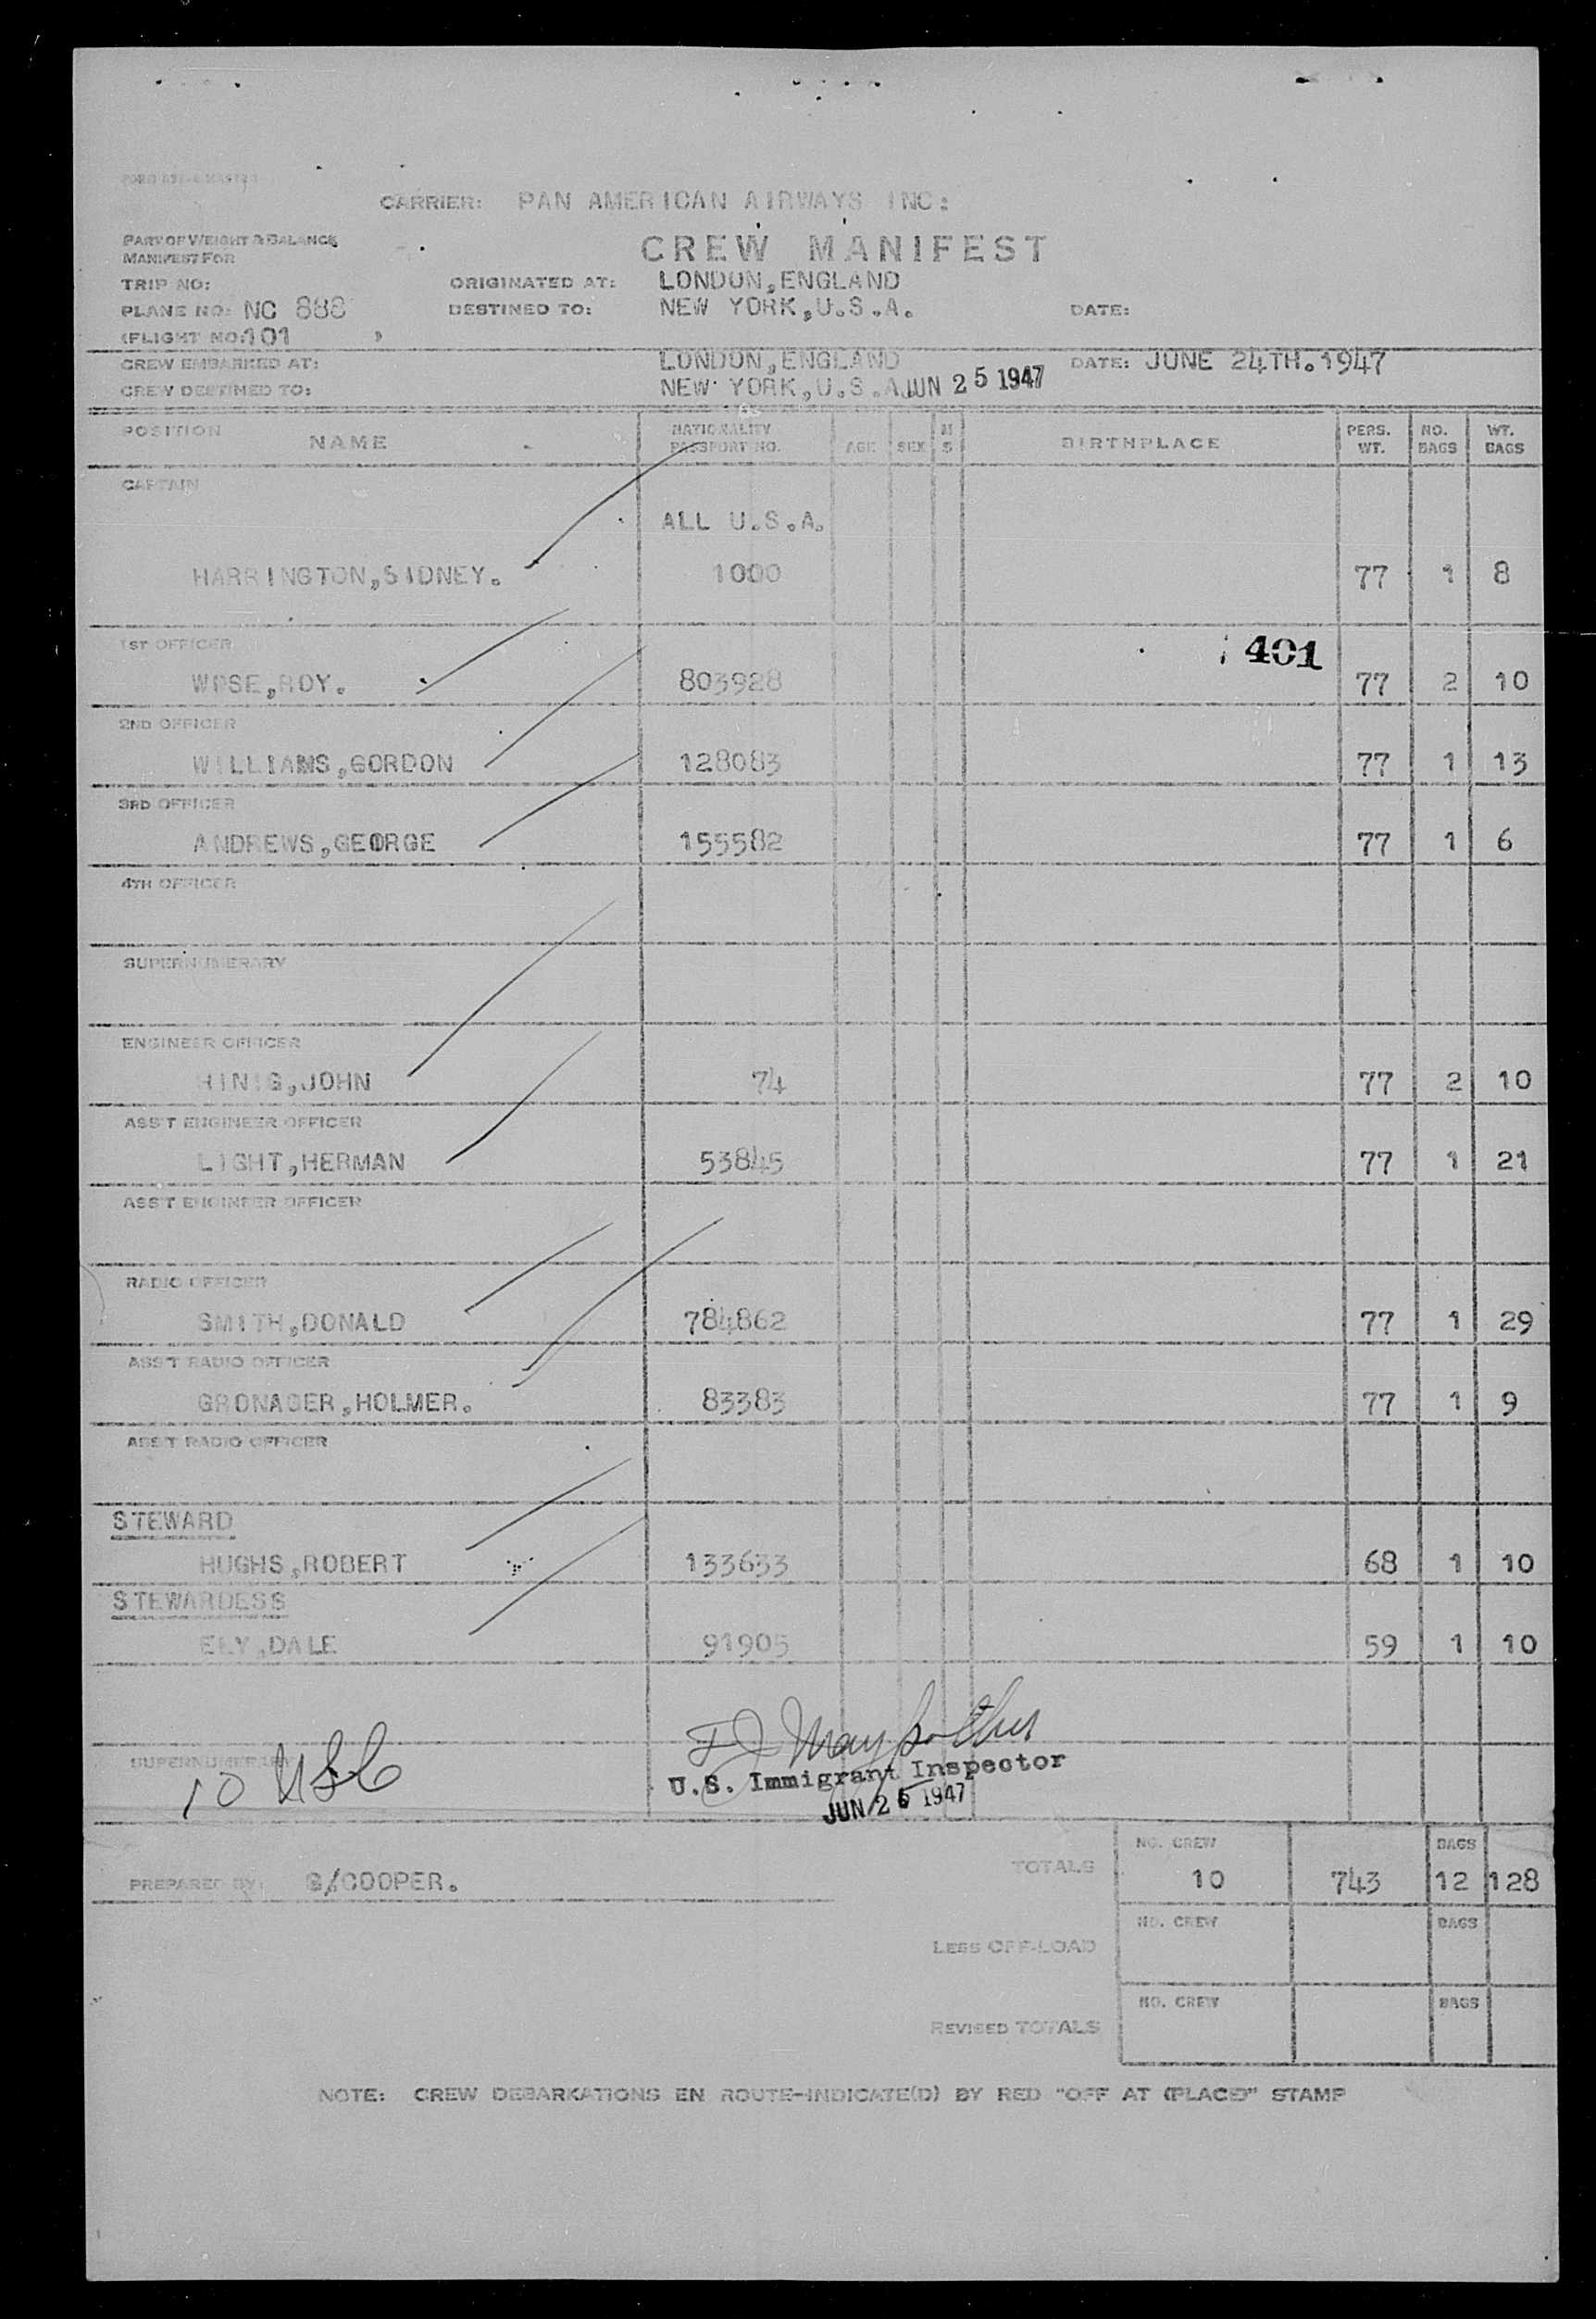 CARRIER: PAN AMERICAN AIRWAYS INC:
PART OF WEIGHT & BALANCE
MANIFEST FOR
CREW MANIFEST
TRIP NO: ORIGINATED AT: LONDON,ENGLAND
PLANE NO: NC 888 DESTINED TO: NEW YORK,U.S.A. DATE:
(FLIGHT NO:101 )
CREW EMBARKED AT: LONDON,ENGLAND DATE: JUNE 24TH.1947
CREW DESTINED TO: NEW YORK,U.S.A. JUN 25 1947
POSITION NAME NATIONALITY PASSPORT NO. AGE SEX M S BIRTHPLACE PERS. WT. NO. BAGS WT. BAGS
CAPTAIN
ALL U.S.A.
HARRINGTON,SIDNEY. 1000 77 1 8
1ST OFFICER 401
WPSE,ROY. 803928 77 2 10
2ND OFFICER
WILLIAMS,GORDON 128083 77 1 13
3RD OFFICER
ANDREWS,GEORGE 155582 77 1 6
4TH OFFICER
SUPERNUMERARY
ENGINEER OFFICER
HINIG,JOHN 74 77 2 10
ASS'T ENGINEER OFFICER
LIGHT,HERMAN 53845 77 1 21
ASS'T ENGINEER OFFICER
RADIO OFFICER
SMITH,DONALD 784862 77 1 29
ASS'T RADIO OFFICER
GRONAGER,HOLMER. 83383 77 1 9
ASS'T RADIO OFFICER
STEWARD
HUGHS,ROBERT 133633 68 1 10
STEWARDESS
ELY,DALE 91905 59 1 10
SUPERNUMERARY
10 USC
U.S. Immigrant Inspector
JUN 25 1947
NO. CREW BAGS
PREPARED BY: G/COOPER. TOTALS 10 743 12 128
NO. CREW BAGS
LESS OFF-LOAD
NO. CREW BAGS
REVISED TOTALS
NOTE: CREW DEBARKATIONS EN ROUTE-INDICATE(D) BY RED "OFF AT (PLACE)" STAMP